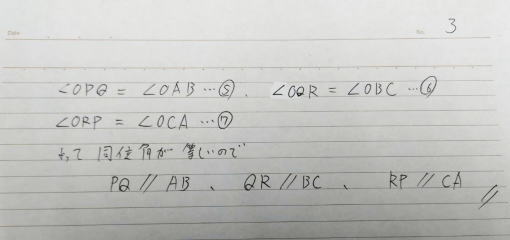 Date
No. 3
∠OPQ = ∠OAB …⑤. ∠OQR = ∠OBC …⑥
∠ORP = ∠OCA …⑦
よって 同位角が 等しいので
PQ // AB 、 QR // BC 、 RP // CA